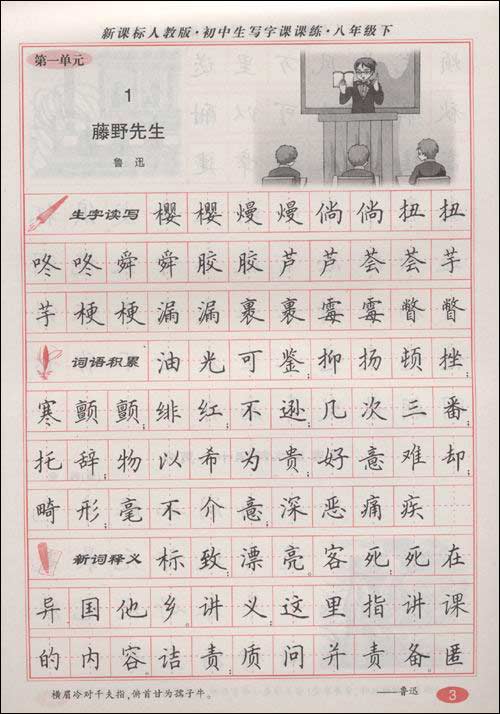 新课标人教版·初中生写字课课练·八年级下
第一单元
1
藤野先生
鲁迅
生字读写 樱樱熳熳倘倘扭扭
咚咚舜舜胶胶芦芦荟荟芋
芋梗梗漏漏裹裹霉霉瞥瞥
词语积累 油光可鉴;抑扬顿挫;
寒颤颤;绯红;不逊;几次三番;
托辞;物以希为贵;好意难却;
畸形;毫不介意;深恶痛疾
新词释义 标致:漂亮。客死:死在
异国他乡。讲义:这里指讲课
的内容。诘责:质问并责备。匿
横眉冷对千夫指,俯首甘为孺子牛。 ——鲁迅
3